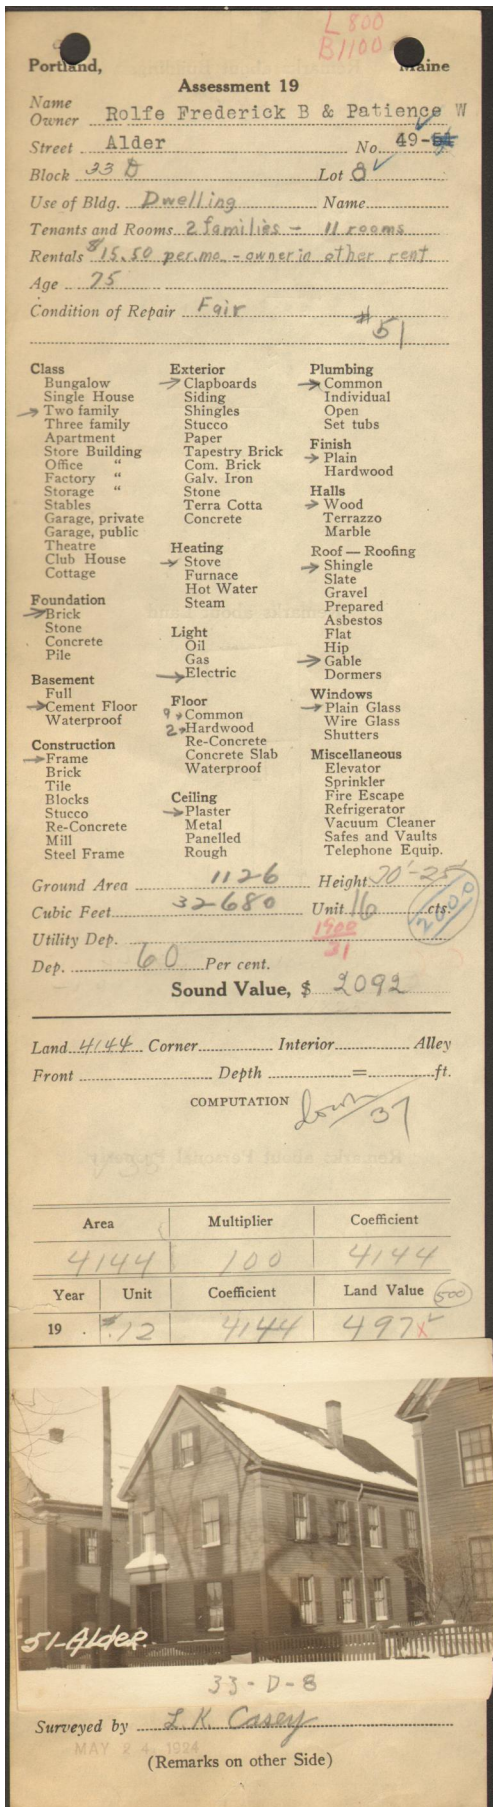 L 800
B1100
Portland, Maine
Assessment 19
Name
Owner Rolfe Frederick B & Patience W
Street Alder No. 49-51
Block 33 D Lot 8
Use of Bldg. Dwelling Name
Tenants and Rooms 2 families - 11 rooms
Rentals $15.50 per.mo. - owner in other rent
Age 75
Condition of Repair Fair
#51
Class
Bungalow
Single House
→ Two family
Three family
Apartment
Store Building
Office "
Factory "
Storage "
Stables
Garage, private
Garage, public
Theatre
Club House
Cottage
Foundation
→ Brick
Stone
Concrete
Pile
Basement
Full
→ Cement Floor
Waterproof
Construction
→ Frame
Brick
Tile
Blocks
Stucco
Re-Concrete
Mill
Steel Frame
Exterior
→ Clapboards
Siding
Shingles
Stucco
Paper
Tapestry Brick
Com. Brick
Galv. Iron
Stone
Terra Cotta
Concrete
Heating
→ Stove
Furnace
Hot Water
Steam
Light
Oil
Gas
→ Electric
Floor
9 → Common
2 → Hardwood
Re-Concrete
Concrete Slab
Waterproof
Ceiling
→ Plaster
Metal
Panelled
Rough
Plumbing
→ Common
Individual
Open
Set tubs
Finish
→ Plain
Hardwood
Halls
→ Wood
Terrazzo
Marble
Roof — Roofing
→ Shingle
Slate
Gravel
Prepared
Asbestos
Flat
Hip
→ Gable
Dormers
Windows
→ Plain Glass
Wire Glass
Shutters
Miscellaneous
Elevator
Sprinkler
Fire Escape
Refrigerator
Vacuum Cleaner
Safes and Vaults
Telephone Equip.
Ground Area 1126 Height 20'-25'
Cubic Feet 32680 Unit 16 cts.
2000
Utility Dep. 1900
31
Dep. 60 Per cent.
Sound Value, $ 2092
Land 4144 Corner Interior Alley
Front Depth = ft.
COMPUTATION
down/37
Area Multiplier Coefficient
4144 100 4144
Year Unit Coefficient Land Value 500
19 . $.12 4144 497 x
51-Alder.
33-D-8
Surveyed by L. K. Casey
MAY 24 1924
(Remarks on other Side)